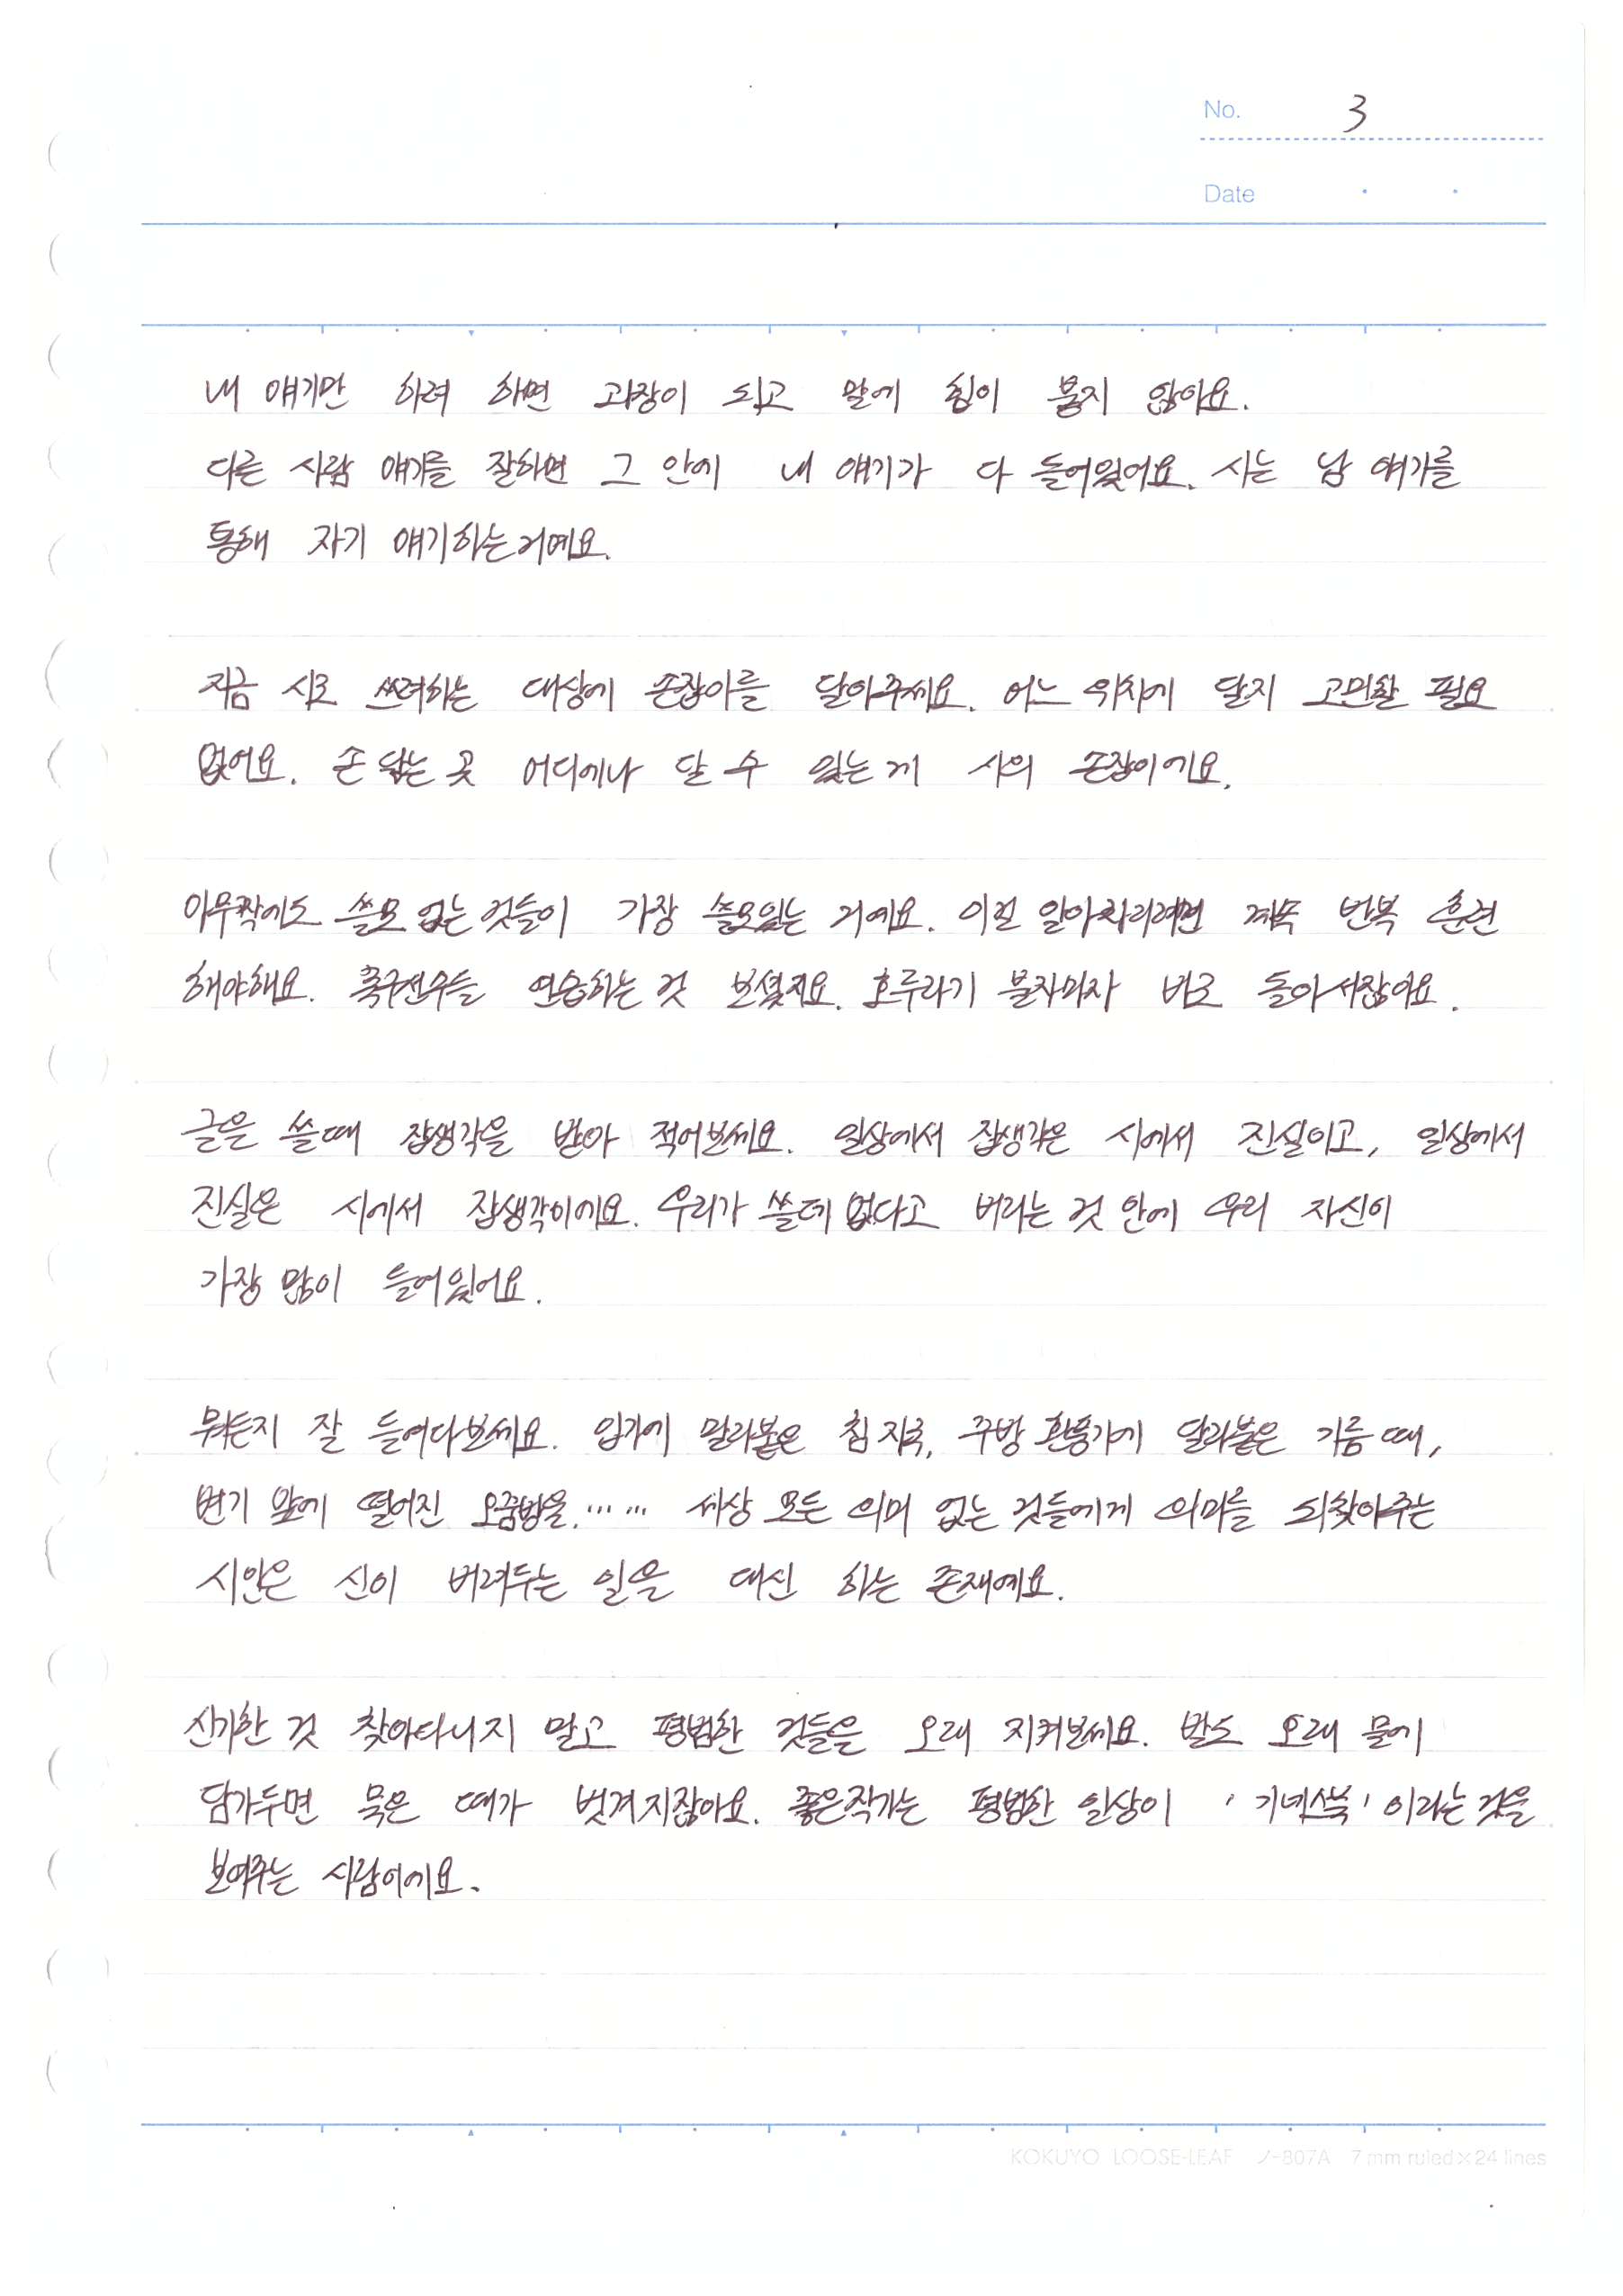 No. 3
Date
내 얘기만 하려 하면 과장이 되고 말에 힘이 붙지 않아요.
다른 사람 얘기를 잘하면 그 안에 내 얘기가 다 들어있어요. 시는 남 얘기를
통해 자기 얘기하는거예요.
지금 시로 쓰려하는 대상에 손잡이를 달아주세요. 어느 위치에 달지 고민할 필요
없어요. 손 닿는 곳 어디에나 달 수 있는게 시의 손잡이에요.
아무짝에도 쓸모 없는 것들이 가장 쓸모있는 거예요. 이걸 알아차리려면 계속 반복 훈련
해야해요. 축구선수들 연습하는 것 보셨지요. 호루라기 불자마자 바로 돌아서잖아요.
글은 쓸때 잡생각을 받아 적어보세요. 일상에서 잡생각은 시에서 진실이고, 일상에서
진실은 시에서 잡생각이에요. 우리가 쓸데없다고 버리는 것 안에 우리 자신이
가장 많이 들어있어요.
뭐든지 잘 들여다보세요. 입가에 말라붙은 침 자국, 주방 환풍기에 달라붙은 기름 때,
변기 앞에 떨어진 오줌방울…… 세상 모든 의미 없는 것들에게 의미를 되찾아주는
시인은 신이 버려두는 일을 대신 하는 존재예요.
신기한 것 찾아다니지 말고 평범한 것들을 오래 지켜보세요. 발도 오래 물에
담가두면 묵은 때가 벗겨지잖아요. 좋은작가는 평범한 일상이 '기네스북'이라는것을
보여주는 사람이에요.
KOKUYO LOOSE-LEAF ノ-807A 7 mm ruled×24 lines